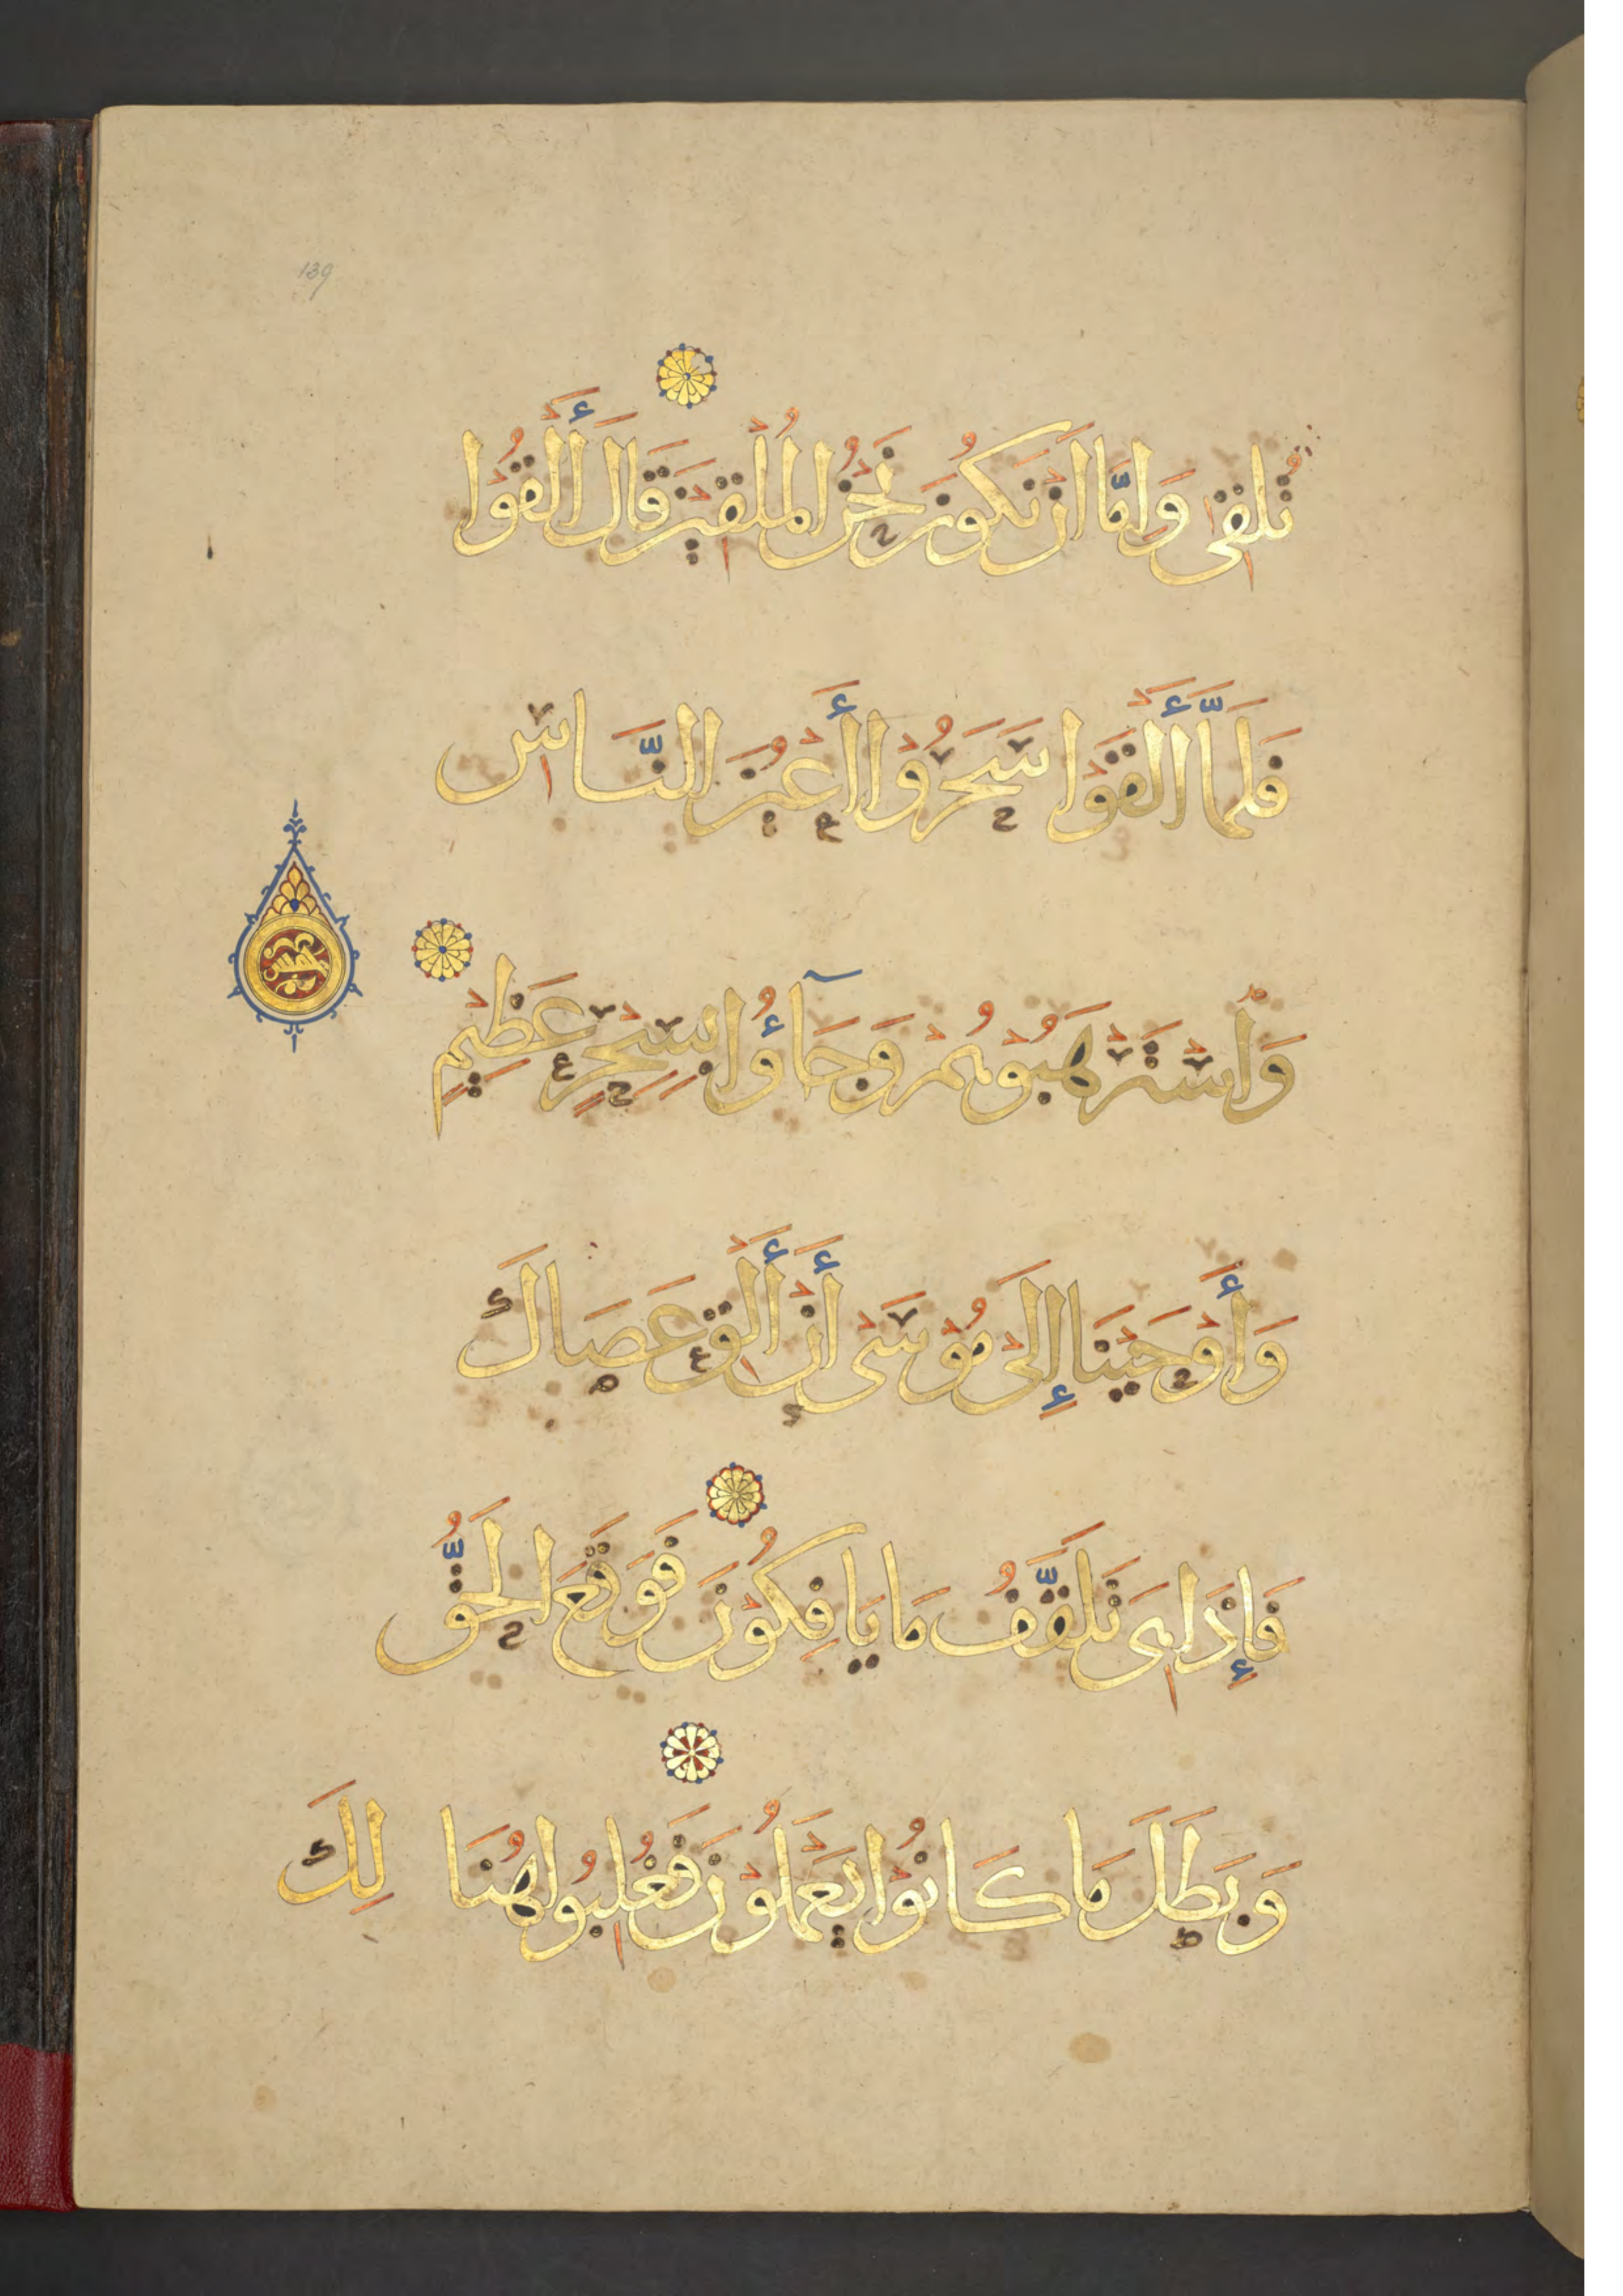 139
تُلْقِيَ وَإِمَّا أَنْ نَكُونَ نَحْنُ الْمُلْقِينَ قَالَ أَلْقُوا
فَلَمَّا أَلْقَوْا سَحَرُوْا أَعْيُنَ النَّاسِ
وَاسْتَرْهَبُوْهُمْ وَجَآؤُا بِسِحْرٍ عَظِيْمٍ
وَأَوْحَيْنَا إِلَىٰ مُوْسَىٰ أَنْ أَلْقِ عَصَاكَ
فَإِذَا هِيَ تَلَقَّفُ مَا يَافِكُوْنَ فَوَقَعَ الْحَقُّ
وَبَطَلَ مَا كَانُوْا يَعْمَلُوْنَ فَغُلِبُوا هُنَا لِكَ